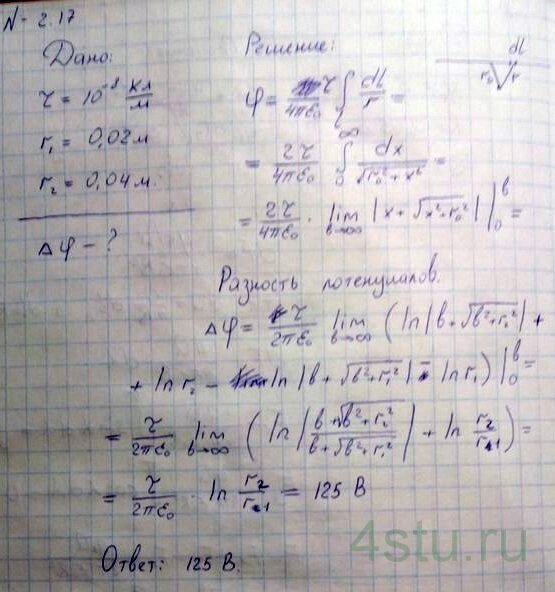 N- 2.17
Дано:
τ = 10⁻⁸ Кл/м
r₁ = 0,02 м
r₂ = 0,04 м.
Δφ - ?
Решение:
dl
r₀ r
φ = τ/4πε₀ ∫ dl/r =
= 2τ/4πε₀ ∫₀^∞ dx/√(r₀²+x²) =
= 2τ/4πε₀ · lim b→∞ |x+√(x²+r₀²)| |₀^b =
Разность потенциалов.
Δφ = τ/2πε₀ lim b→∞ (ln|b+√(b²+r₁²)| +
+ ln r₂ - ln|b+√(b²+r₁²)| - ln r₁)|₀^b =
= τ/2πε₀ lim b→∞ (ln|(b+√(b²+r₂²))/(b+√(b²+r₁²))| + ln r₂/r₁) =
= τ/2πε₀ · ln r₂/r₁ = 125 В
Ответ: 125 В.
4stu.ru